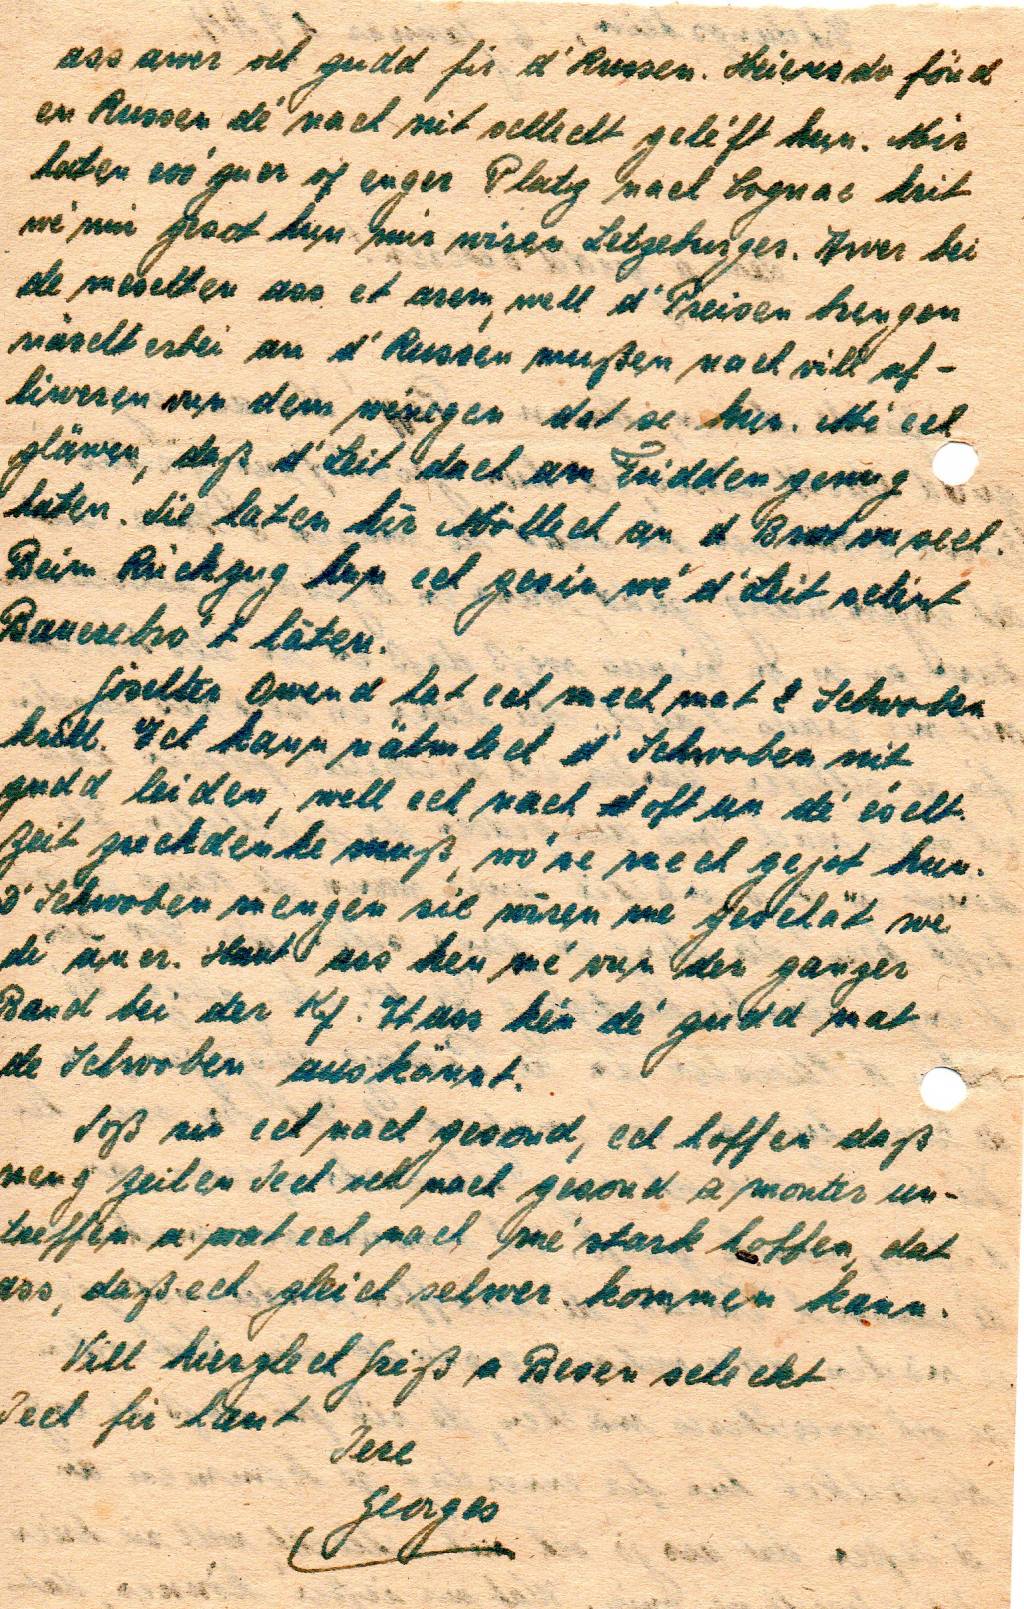 ass awer vel gudd fir d'Russen. Heieves do fönd
en Russen dé nach nit schlecht geléft hun. Mir
haten esó guer of enger Platz nach Cognac krit
wé mir gesot hun mir wiren Letzeburger. Awer bei
de meschten ass et arem, well d'Preisen brengen
näscht erbei an d'Russen mußen nach vill of-
liweren vun dem wénegen dat se hun. Mé ech
gläwen, daß d'Leit dach am Fridden genug
haten. Sie haten hir Möllech an d Brot
Beim Rückzug hun ech gesin wé d'Leit schint
Bauerebró't häten.
Göschter Owend hat ech mech mat Schwoben
kröll. Ech kann nähmlech d'Schwoben nit
gudd leiden, well ech nach oft un dé éischt
Zeit zreckdénke muß, wó se mech gejot hun.
D'Schwoben mengen sie wiren mé geschät wé
di aner. Haut ass ken mé vun der ganzer
Band bei der Kp. Et ass kén dé gudd mat
de Schwoben auskönnt.
Soß sin ech nach gesond, ech hoffen daß
meng Zeilen Iech och nach gesond a monter un-
treffen a wat ech nach mé stark hoffen, dat
ass, daß ech gleich selwer kommen kann.
Vill hierzlech Greiß a Besen scheckt
Iech fir haut
Iere
Georges